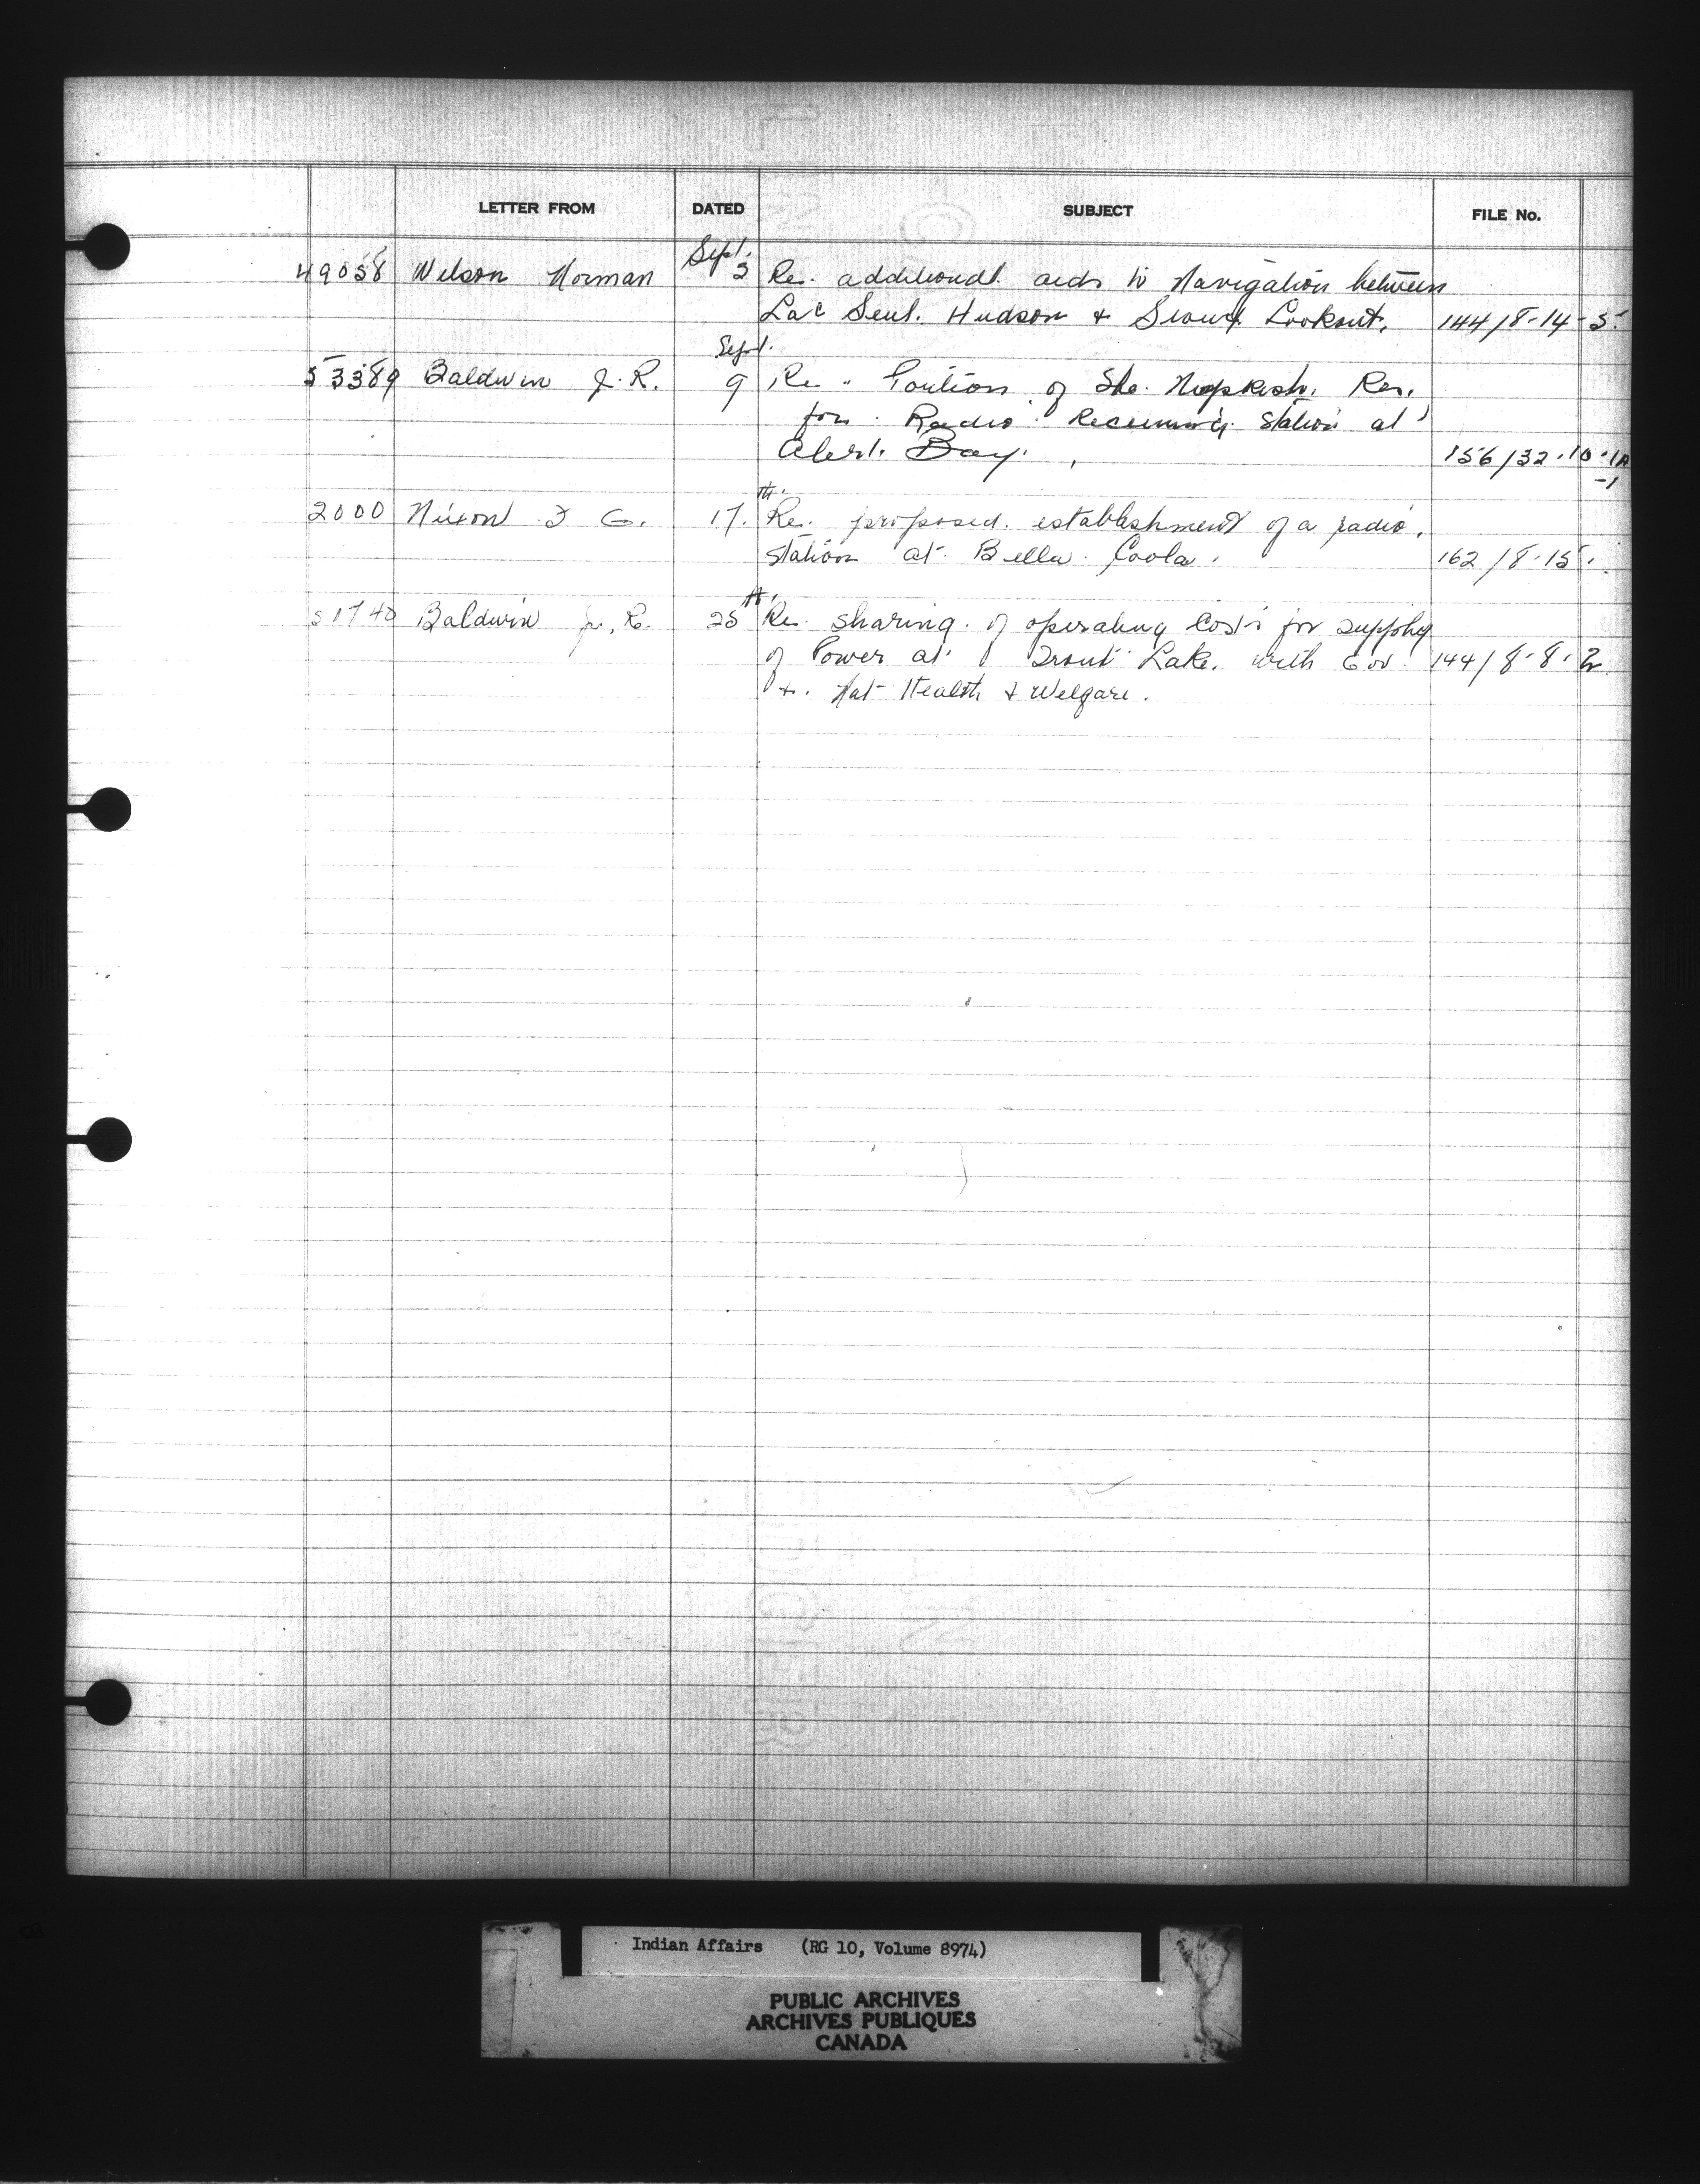 LETTER FROM DATED SUBJECT FILE No.
Sept.
49058 Wilson Norman 3 Re. additional aids to Navigation between
Lac Seul. Hudson & Sioux Lookout. 144/8-14-5.
Sept.
53389 Baldwin J. R. 9 Re. Portion of the Nimpkish. Res.
for Radio Receiving Station at
Alert Bay. 156/32-10-1A
-1
2000 Nixon G. 17.th Re. proposed establishment of a radio
station at Bella Coola. 162/8-15.
51740 Baldwin J. R. 25th Re. sharing of operating costs for supplying
of Power at Trout Lake. with Gov. 144/8-8-2
+. Nat Health & Welfare.
Indian Affairs (RG 10, Volume 8974)
PUBLIC ARCHIVES
ARCHIVES PUBLIQUES
CANADA